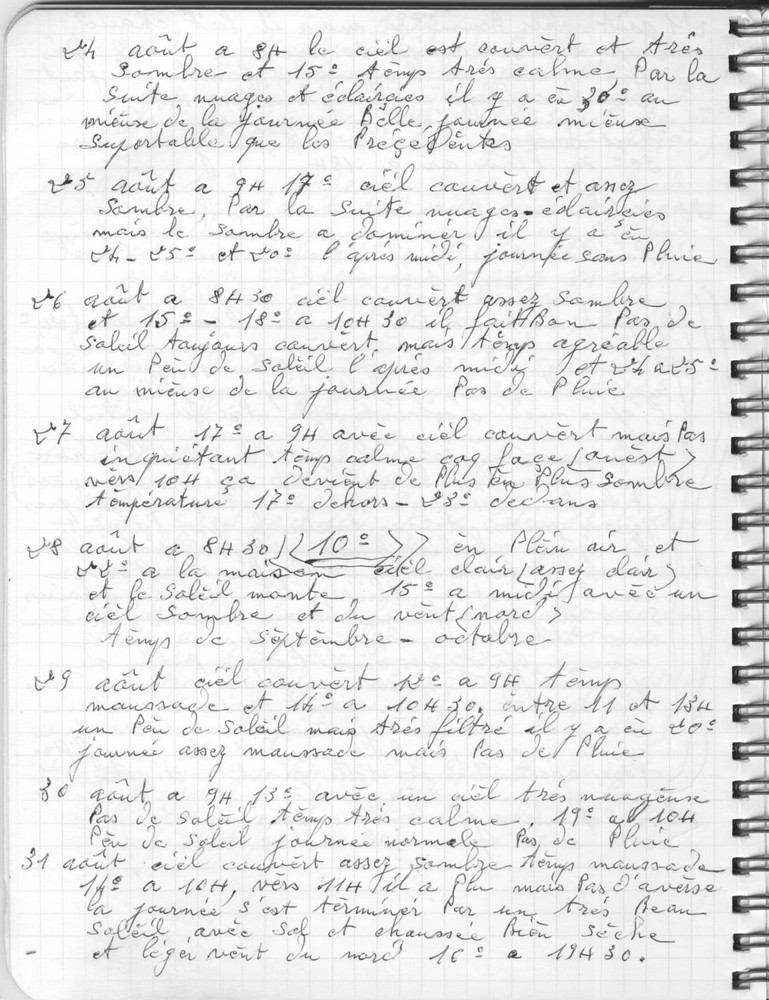 24 août a 8H le cièl est couvèrt et trés
sombre et 15º tèmps trés calme, Par la
suite nuages et éclaircies il y a èu 30º au
mieuse de la journée Bèlle journée mieuse
suportable que les Précédèntes
25 août a 9H 17º cièl couvèrt et assez
sombre, Par la suite nuages-éclaircies
mais le sombre a dominér il y a èu
24-25º et 20º l'aprés midi, journée sans Pluie
26 août a 8H30 cièl couvèrt assez sombre
et 15º - 18º a 10H30 il fait Bon Pas de
soleil toujours couvèrt mais tèmps agréable
un Pèu de solèil l'aprés midi et 24 a 25º
au mieuse de la journée Pas de Pluie
27 août 17º a 9H avèc cièl couvèrt mais Pas
inquiétant tèmps calme coq face (ouèst)
vèrs 10H ça deviènt de Plus èn Plus sombre
tèmpérature 17º dehors - 23º dedans
28 août a 8H30 ((10º)) èn Plèin air et
22º a la maison cièl clair (assez clair)
et le solèil monte 15º a midi avèc un
cièl sombre et du vènt (nord)
tèmps de sèptèmbre - octobre
29 août cièl couvèrt 12º a 9H tèmps
maussade et 14º a 10H30. èntre 11 et 13H
un Pèu de solèil mais trés filtré il y a èu 20º
journée assez maussade mais Pas de Pluie
30 août a 9H 13º avèc un cièl trés nuageuse
Pas de solèil tèmps trés calme, 19º a 10H
Pèu de solèil journée normale Pas de Pluie
31 août cièl couvèrt assez sombre tèmps maussade
14º a 10H, vèrs 11H il a Plu mais Pas d'avèrse
la journée s'est tèrminér Par un trés Beau
solèil avèc sol et chaussée Bièn sèche
et légér vènt du nord 16º a 19H30.